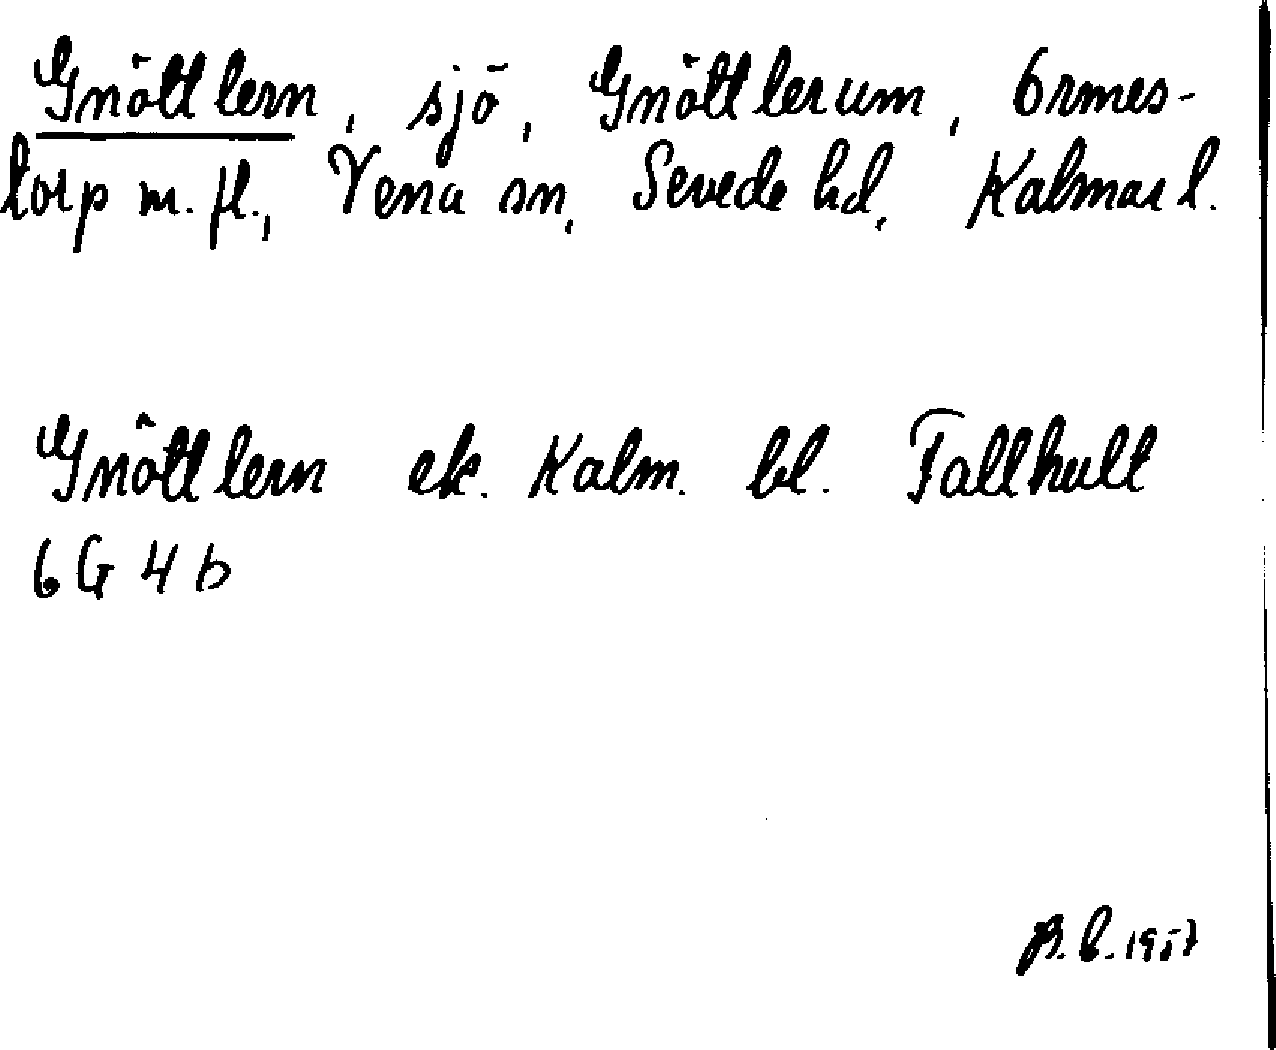 Gnöttlern, sjö, Gnöttlerum, Ormes-
torp m. fl., Vena sn, Sevede hd, Kalmar l.
Gnöttlern ek. Kalm. bl. Tallhult
6 G 4 b
B. E. 1957